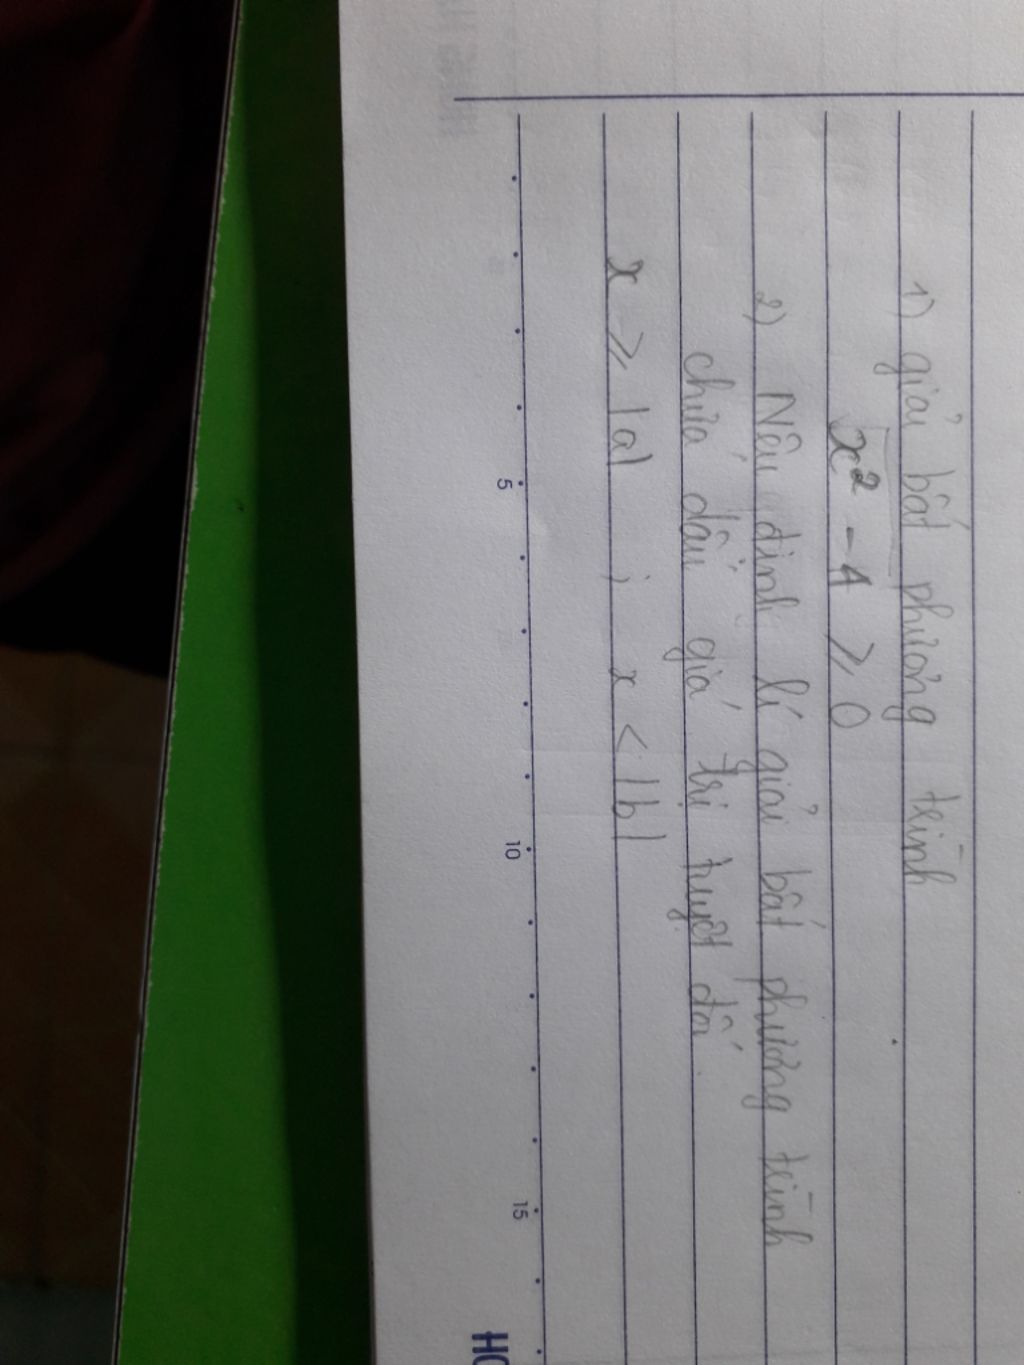 1) giải bất phương trình
x² - 4 ≥ 0
2) Nêu định lí giải bất phương trình
chứa dấu giá trị tuyệt đối.
x ≥ |a| ; x < |b|
5 10 15
HO